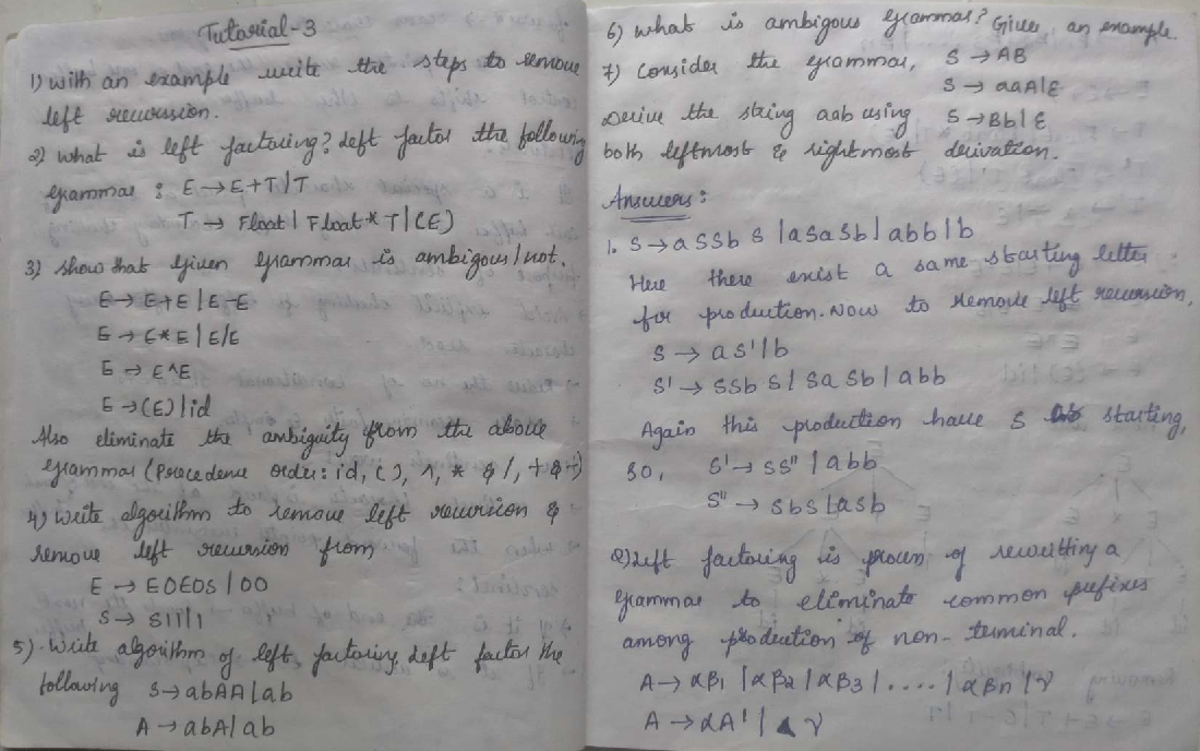 Tutorial-3
1) With an example write the steps to remove
left recurssion.
2) What is left factoring? Left factor the following
grammar : E → E+T/T
T → Float | Float * T | (E)
3) Show that given grammar is ambigous/not.
E → E+E | E-E
E → E*E | E/E
E → E^E
E → (E) | id
Also eliminate the ambiguity from the above
grammar (Precedence order: id, (), ^, * & /, + & -)
4) Write algorithm to remove left recursion &
remove left recursion from
E → E0E0S | 00
S → S11 | 1
5) Write algorithm of left factoring. Left factor the
following S → abAA | ab
A → abA | ab
6) What is ambigous grammar? Give an example.
7) Consider the grammar, S → AB
S → aaA | ε
Derive the string aab using S → Bb | ε
both leftmost & rightmost derivation.
Answers :
1. S → a SSb S | aSaSb | abb | b
Here there exist a same starting letter
for production. Now to remove left recursion,
S → aS' | b
S' → SSb S | SaSb | abb
Again this production have S starting,
So, S' → SS'' | abb
S'' → SbS | aSb
2) Left factoring is of rewritting a
grammar to eliminate common prefixes
among production of non-terminal.
A → αβ1 | αβ2 | αβ3 | .... | αβn | γ
A → αA' | γ